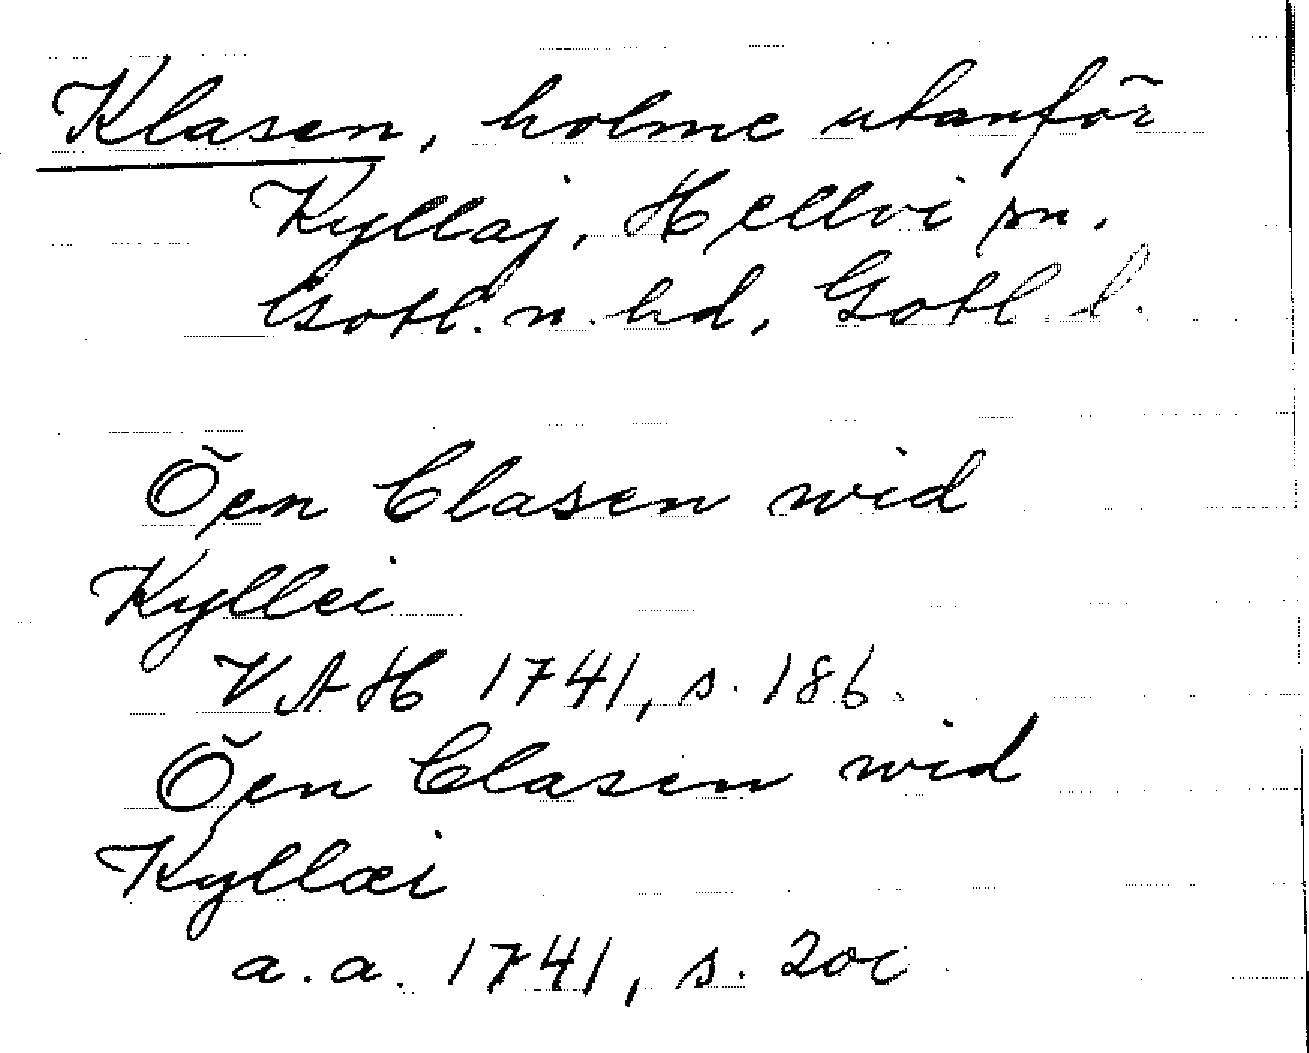 Klasen, holme utanför
Kyllaj, Hellvi sn.
Gotl. n. hd, Gotl. l.
Öen Clasen wid
Kyllei
VAH 1741, s. 186.
Öen Clasen wid
Kyllæi
a.a. 1741, s. 200